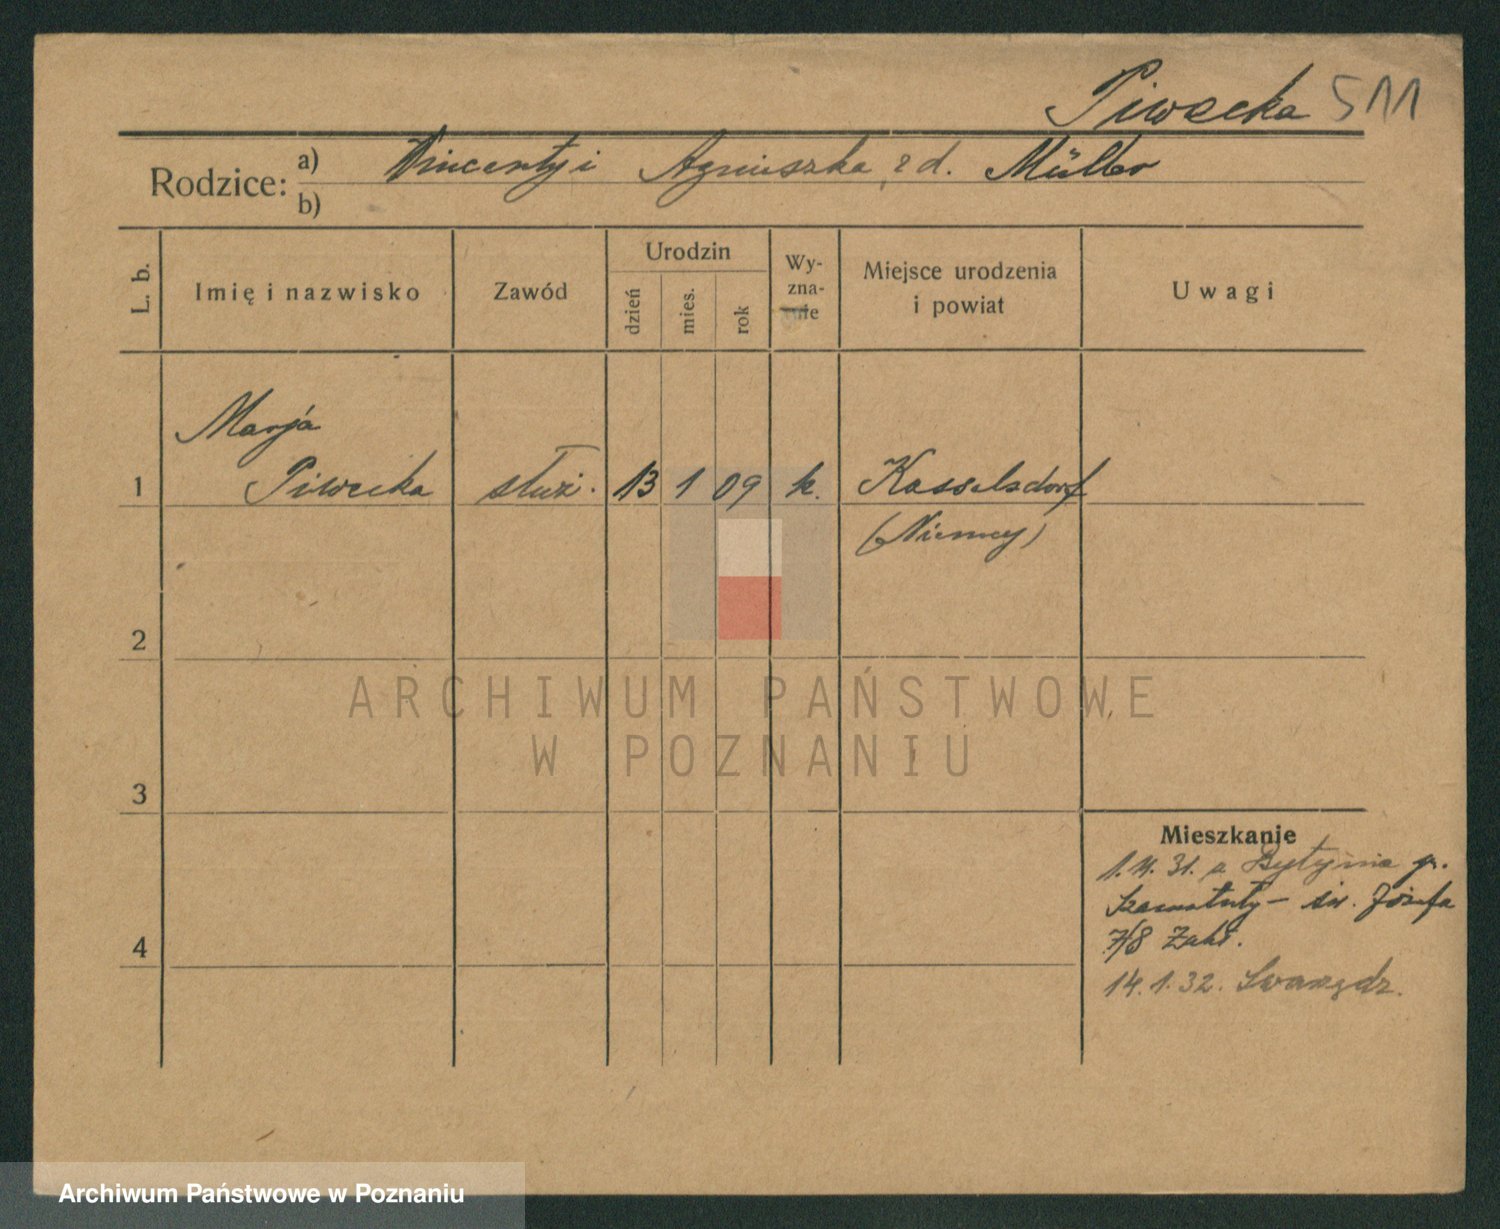 Piwecka 511
Rodzice: a) Wincenty i Agnieszka, z d. Müller
b)
L. b.
Imię i nazwisko
Zawód
Urodzin
dzień
mies.
rok
Wy-
zna-
nie
Miejsce urodzenia
i powiat
Uwagi
Marja
1 Piwecka służ. 13 1 09 k. Kasselsdorf
(Niemcy)
2
3
4
Mieszkanie
1. 31. z Bytynia p.
Szamotuły - św. Józefa
7/8 Zakł.
14.1.32. Swarzędz.
ARCHIWUM PAŃSTWOWE
W POZNANIU
Archiwum Państwowe w Poznaniu